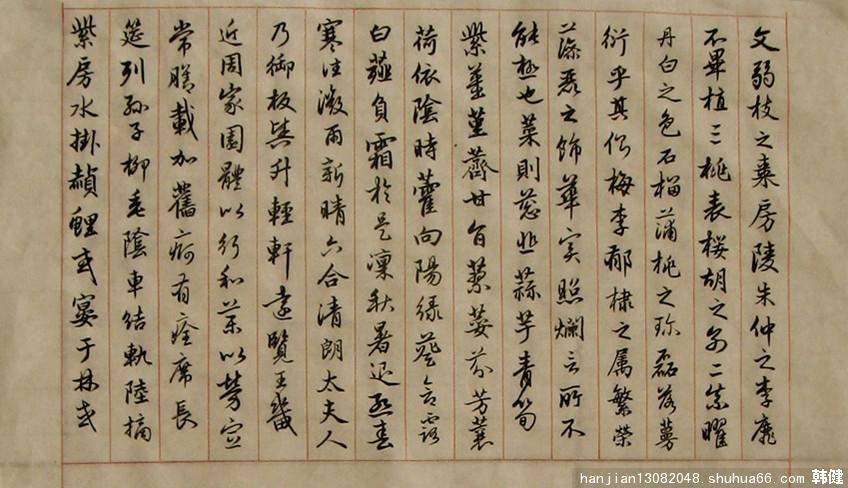 文弱枝之棗房陵朱仲之李靡
不畢植三桃表櫻胡之別二柰曜
丹白之色石榴蒲桃之珍磊落蔓
衍乎其側梅李郁棣之属繁榮
藻麗之飾華实照爛言所不
能極也菜則葱韭蒜芋青筍
紫薑堇薺甘旨蓼荽芬芳蘘
荷依陰時藿向陽绿葵含露
白薤負霜於是凜秋暑退熙春
寒往微雨新晴六合清朗太夫人
乃御板輿升輕軒遠覽王畿
近周家園體以行和藥以勞宣
常膳載加舊痾有痊席長
筵列孫子柳垂陰車结軌陸摘
紫房水掛赬鯉或宴于林或
hanjian13082048.shuhua66.com 韩健